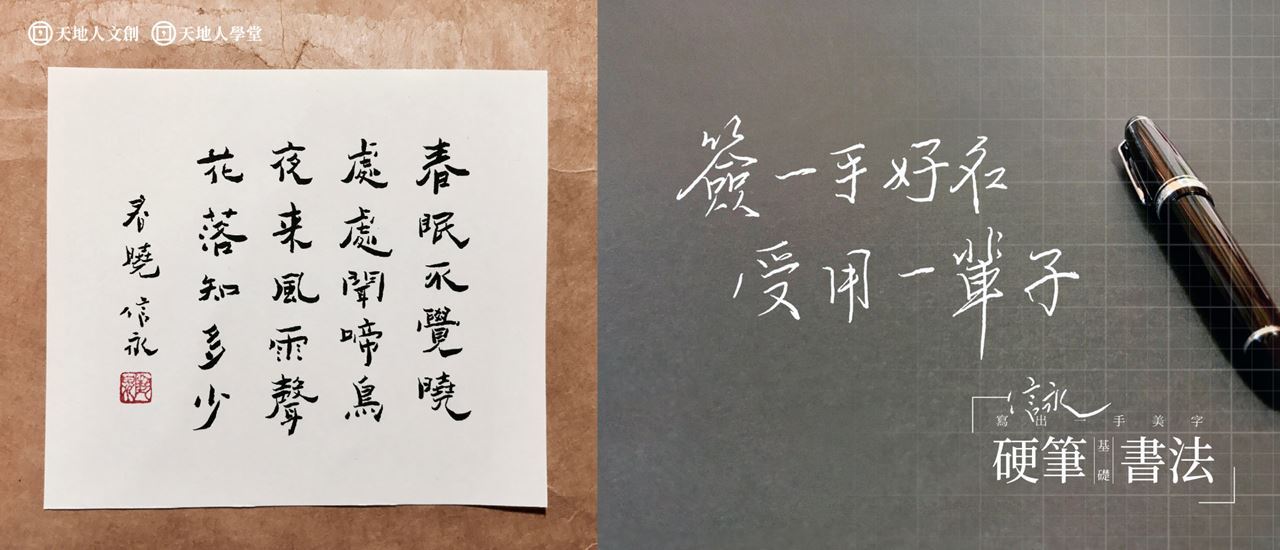 天地人文創 天地人學堂
春眠不覺曉
處處聞啼鳥
夜来風雨聲
花落知多少
春曉 信永
簽一手好名
受用一輩子
信詠
寫出一手美字
硬筆基礎書法